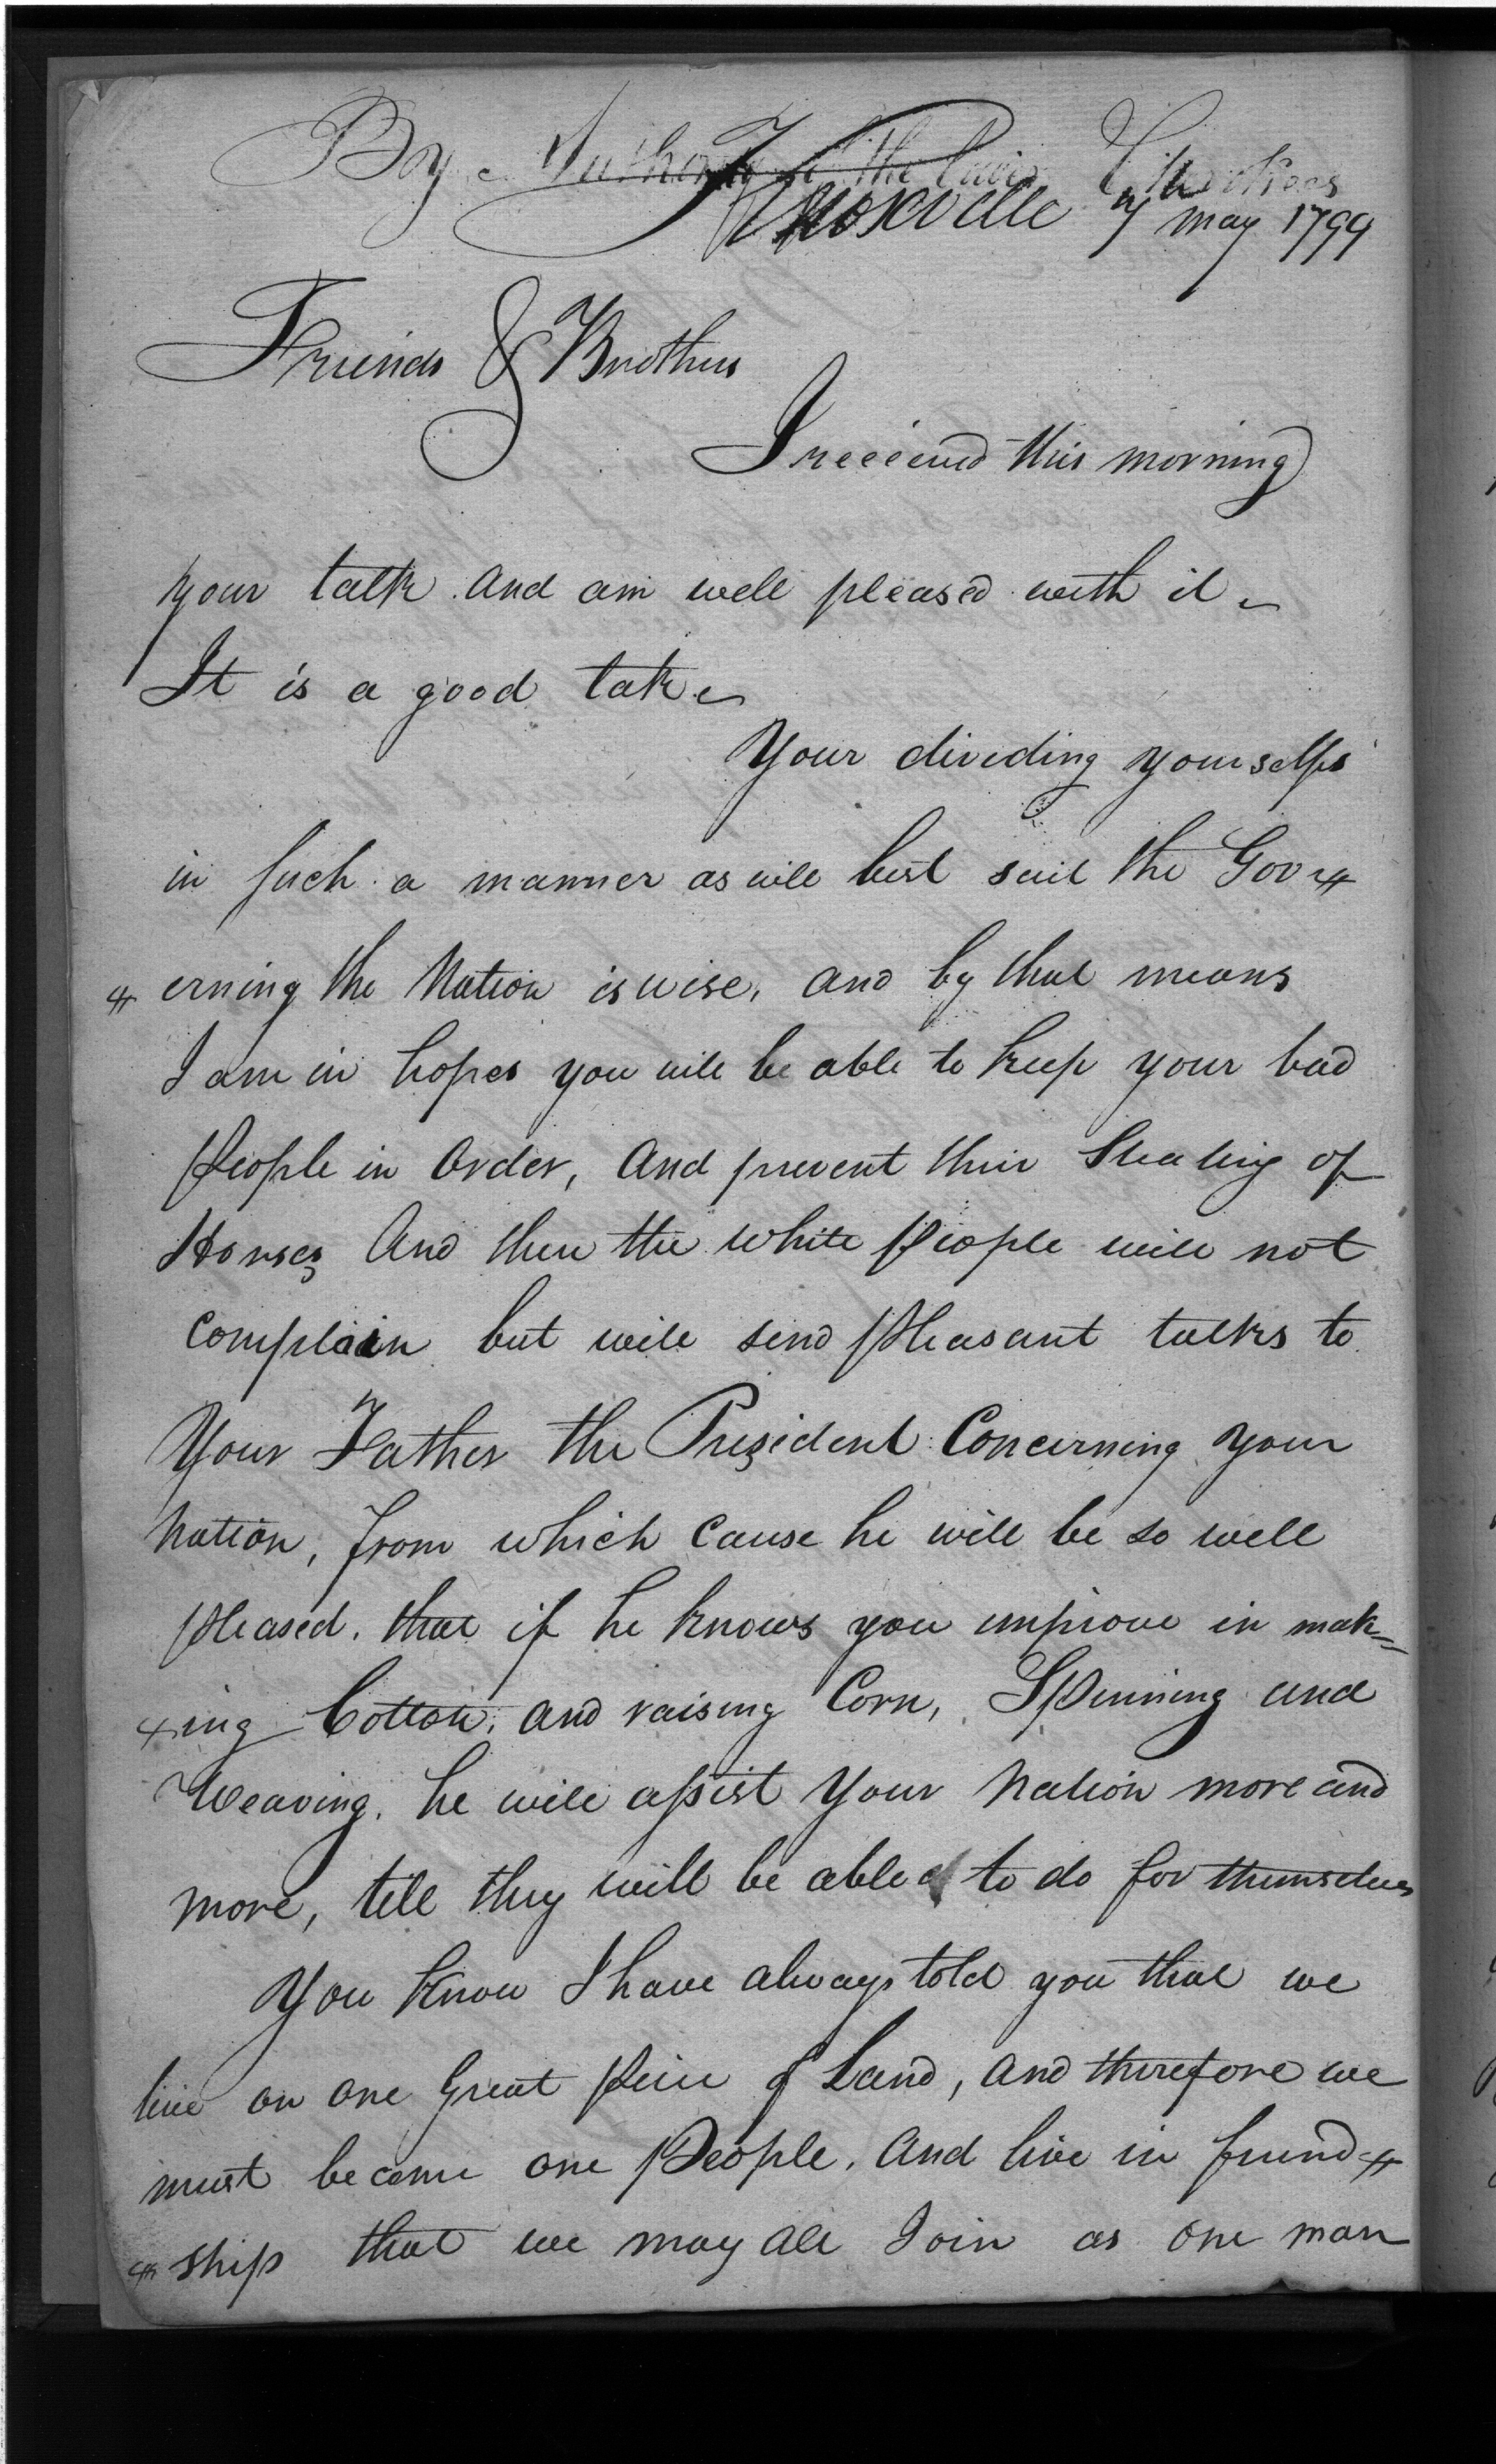 By Authority of the Cherokees
Knoxville 7 may 1799
Friends & Brothers
I received this morning
your talk and am well pleased with it
It is a good talk
Your dividing yourselfs
in such a manner as will best suit the Gov
erning the Nation is wise, and by that means
I am in hopes you will be able to keep your bad
People in Order, And prevent their Stealing of
Horses And then the white People will not
Complain but will send Pleasant talks to
Your Father the President Concerning your
Nation, from which Cause he will be so well
Pleased, that if he knows you improve in mak=
ing Cotton, and raising Corn, Spinning and
Weaving, he will assist Your Nation more and
more, till they will be able to do for themselves
You know I have always told you that we
live on one Great Peice of Land, and therefore we
must become one People, And live in freind
ship that we may all Join as one man